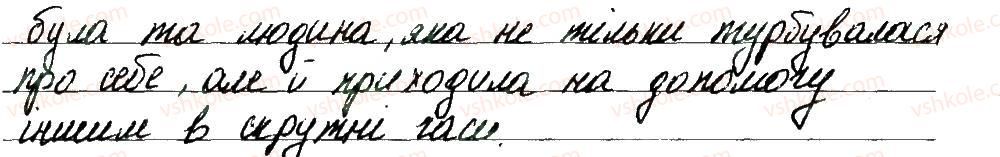 була та людина, яка не тільки турбувалася
про себе, але й приходила на допомогу
іншим в скрутні часи.